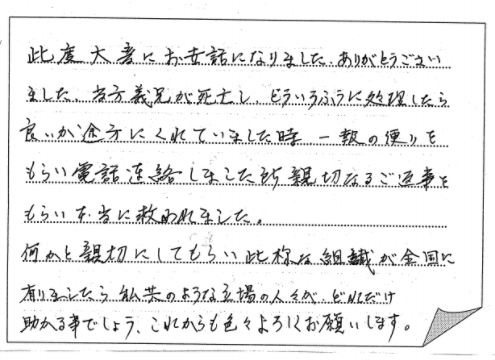 此度大吾にお世話になりました、ありがとうござい
ました。当方義兄が死亡し、どういうふうに処理したら
良いか途方にくれていました時 一報の便りを
もらい電話連絡しました所親切なるご返事を
もらい本当に救われました。
何かと親切にしてもらい此様な組織が全国に
有りましたら私共のような立場の人々が、どれだけ
助かる事でしょう、これからも色々よろしくお願いします。